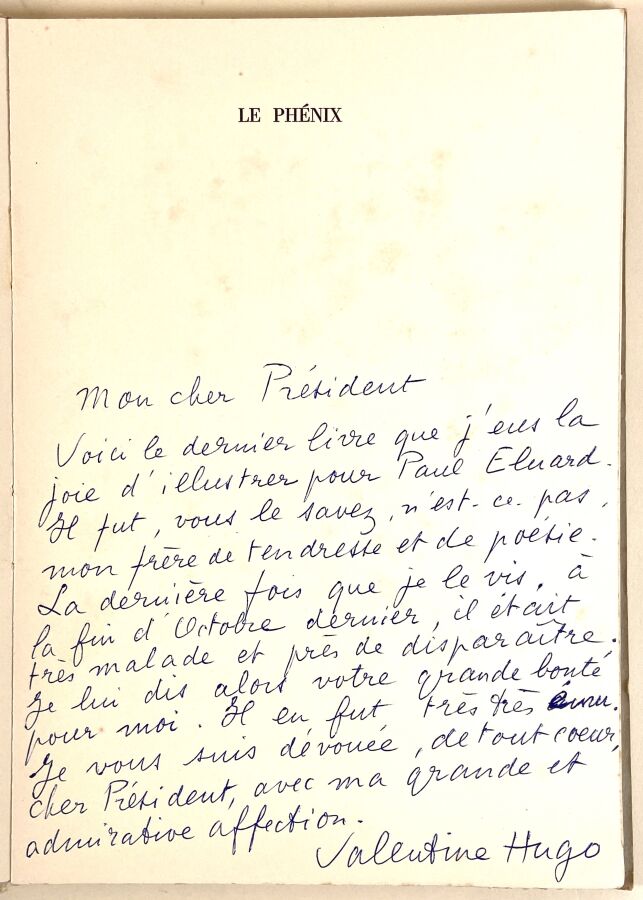 LE PHÉNIX
Mon cher Président
Voici le dernier livre que j'eus la
joie d'illustrer pour Paul Eluard.
Il fut, vous le savez, n'est-ce-pas,
mon frère de tendresse et de poésie.
La dernière fois que je le vis, à
la fin d'Octobre dernier, il était
très malade et près de disparaître.
Je lui dis alors votre grande bonté
pour moi. Il en fut très très ému.
Je vous suis dévouée, de tout coeur,
cher Président, avec ma grande et
admirative affection.
Valentine Hugo